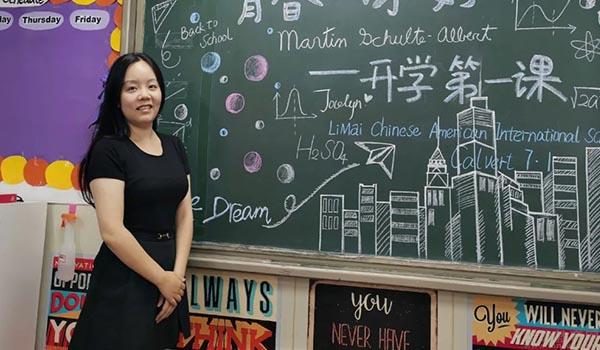 Schedule
Thursday
Friday
Back to
School
Martin Schulte-Albert
一开学第一课
Jocelyn
LiMai Chinese American International
H2SO4
Calvert 7.
Dream
OPPORT
DO
YOU
ALWAYS
THINK
you
NEVER HAVE
You WILL NEVER
KNOW YOUR